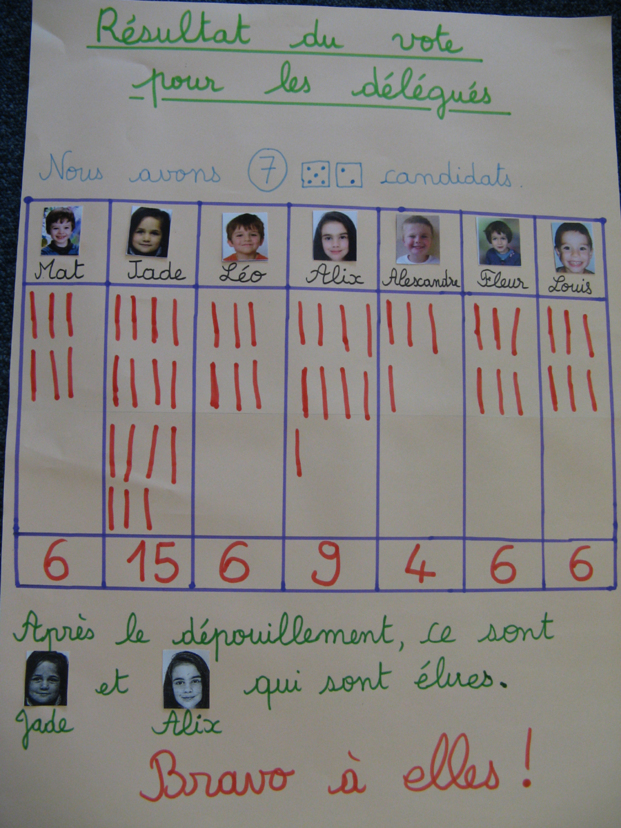 Résultat du vote
pour les délégués
Nous avons 7 candidats.
Mat Jade Léo Alix Alexandre Fleur Louis
6 15 6 9 4 6 6
Après le dépouillement, ce sont
et qui sont élues.
Jade Alix
Bravo à elles !